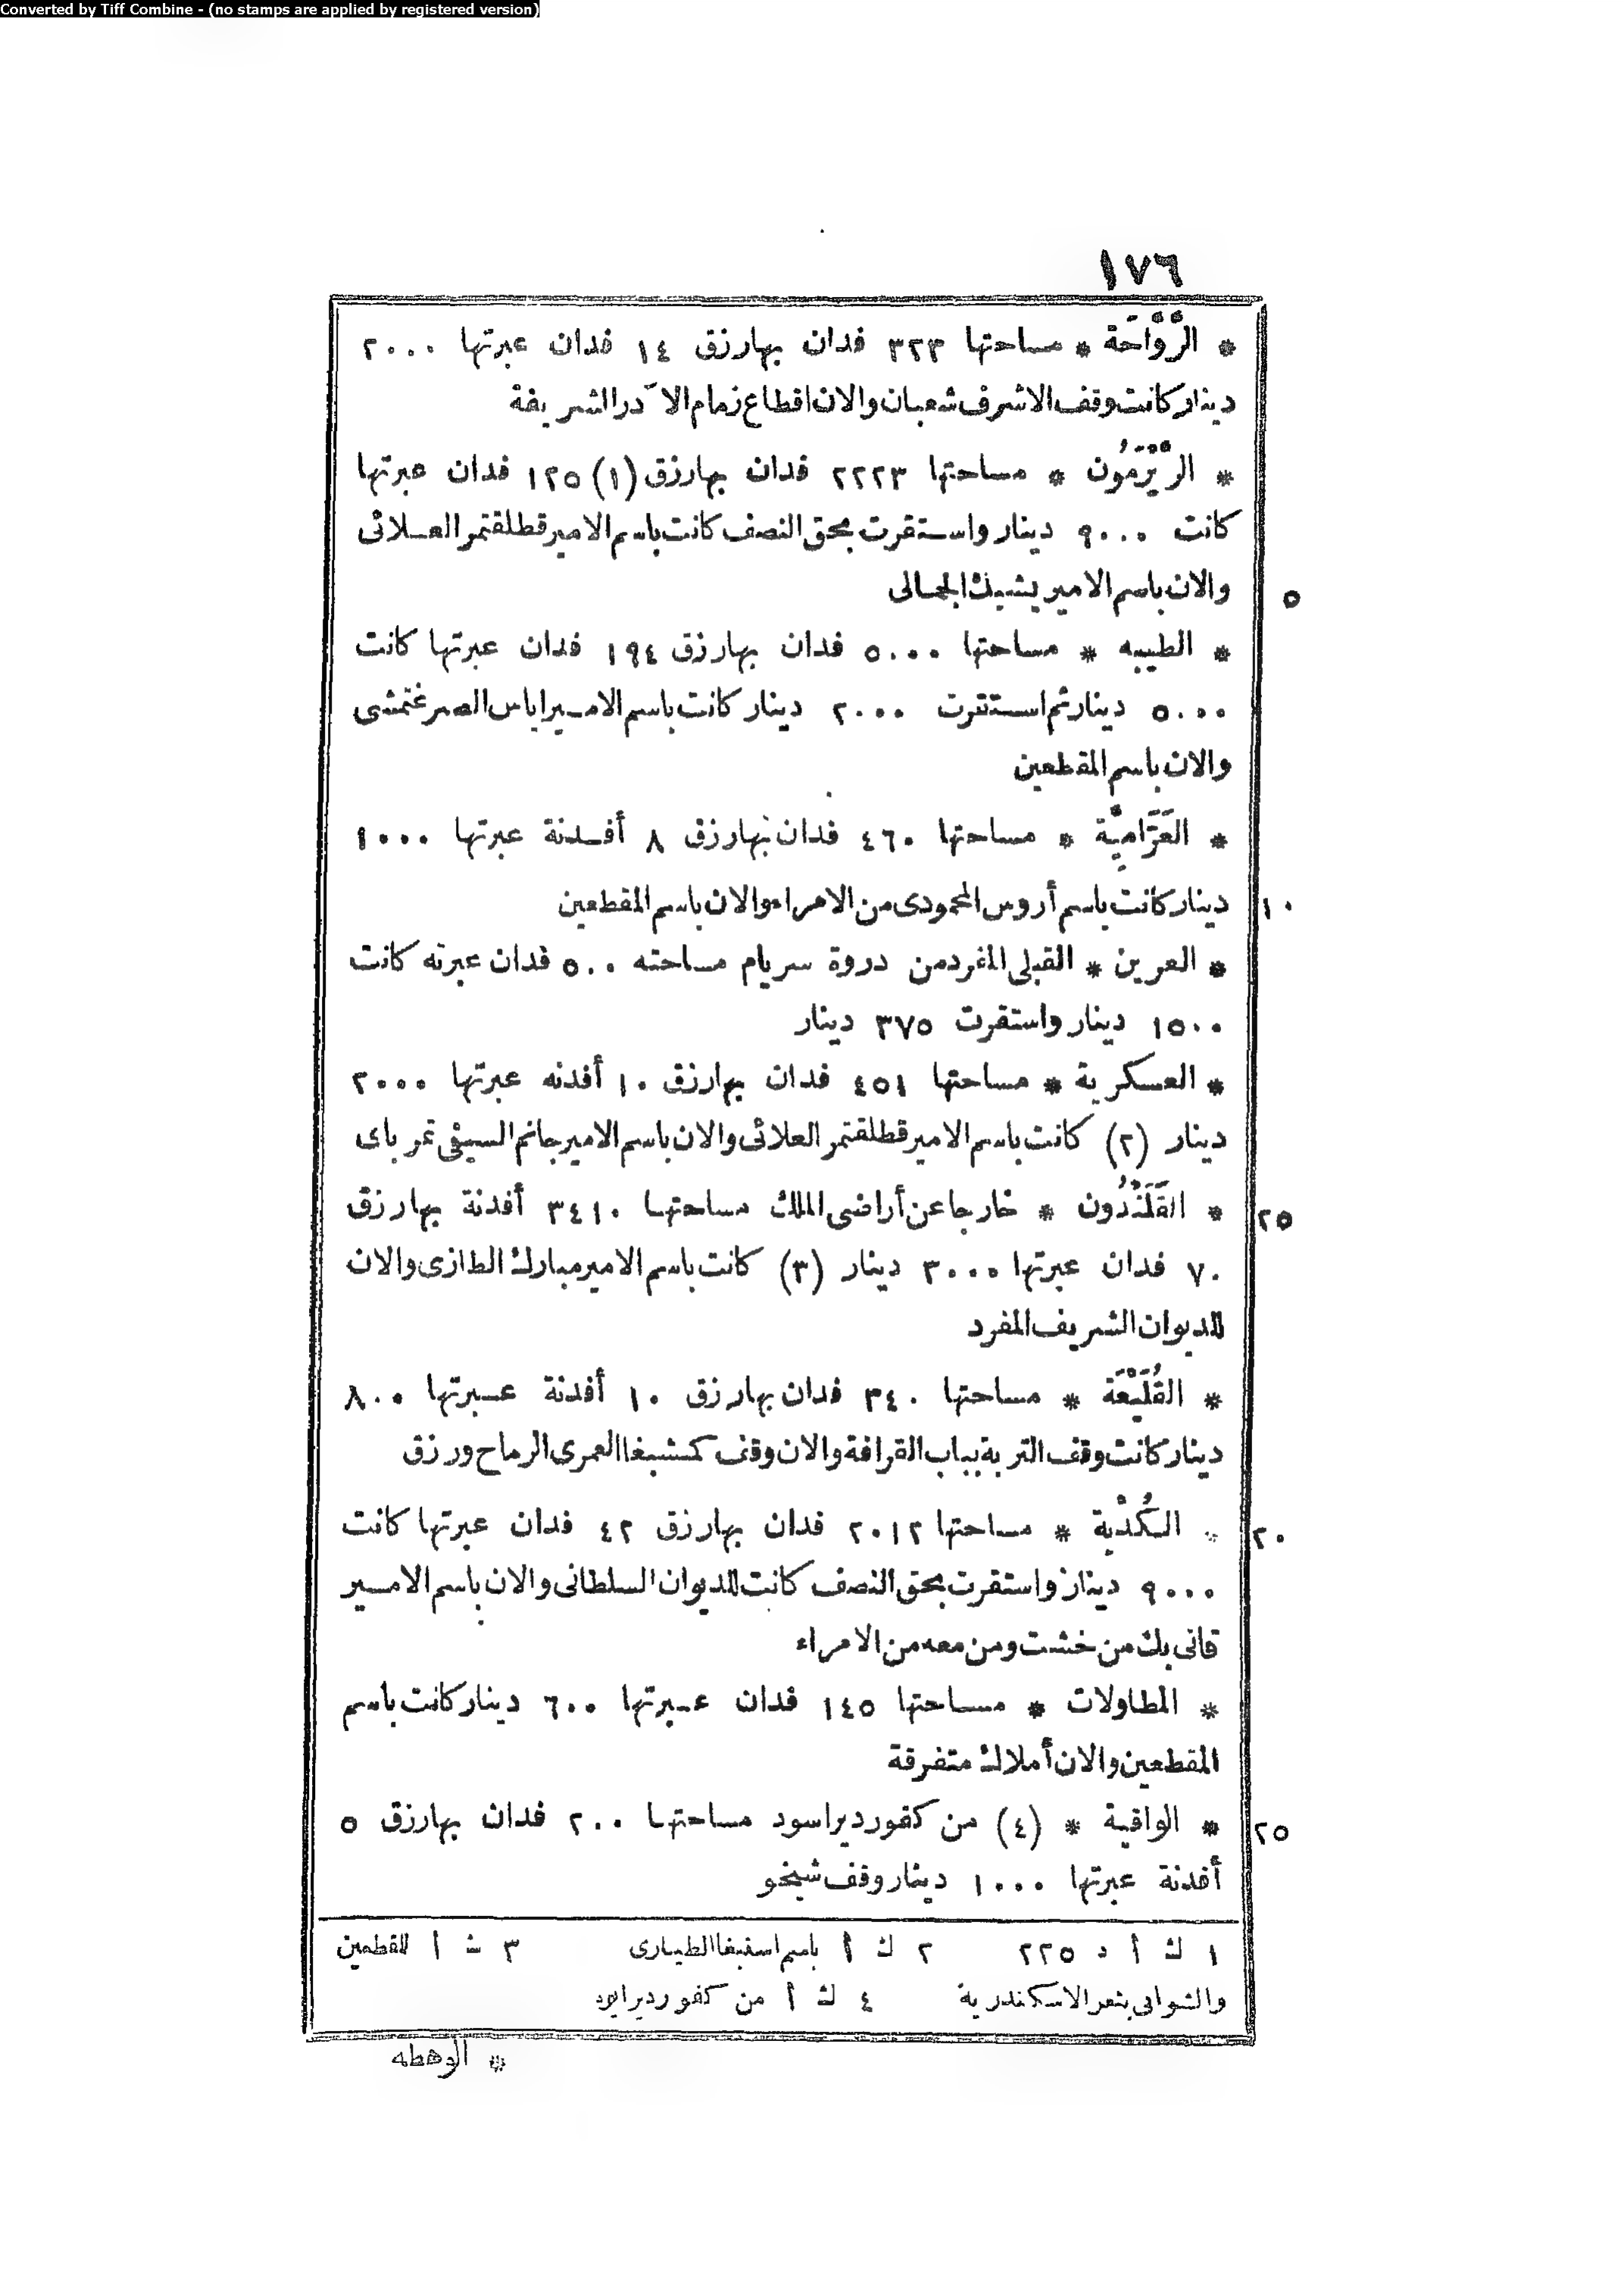 Converted by Tiff Combine - (no stamps are applied by registered version)
١٧٦
* الرَّوَّاحَة * مساحتها ٣٢٣ فدان بها رزق ١٤ فدان عبرتها ٢٠٠٠
دينار كانت وقف الاشرف شعبان والان اقطاع زمام الآدر الشريفة
* الرَّيْرَمُون * مساحتها ٢٢٢٣ فدان بها رزق (١) ١٢٥ فدان عبرتها
كانت ٩٠٠٠ دينار واستقرت بحق النصف كانت باسم الامير قطلقتمر العلائى
والان باسم الامير يشبك الجمالى
٥
* الطيبه * مساحتها ٥٠٠٠ فدان بها رزق ١٩٤ فدان عبرتها كانت
٥٠٠٠ دينار ثم استقرت ٢٠٠٠ دينار كانت باسم الامير اياس الصرغتمشى
والان باسم المقطعين
* العَرَّامِيَّة * مساحتها ٤٦٠ فدان بها رزق ٨ أفدنة عبرتها ١٠٠٠
دينار كانت باسم أروس المحمودى من الامراء والان باسم المقطعين
١٠
* العرين * القبلى المفرد من دروة سربام مساحته ٥٠٠ فدان عبرته كانت
١٥٠٠ دينار واستقرت ٣٧٥ دينار
* العسكرية * مساحتها ٤٥١ فدان بها رزق ١٠ أفدنه عبرتها ٢٠٠٠
دينار (٢) كانت باسم الامير قطلقتمر العلائى والان باسم الامير جانم السيفى تمر باى
* القَلَنْدُون * خارجا عن أراضى الملك مساحتها ٣٤١٠ أفدنة بها رزق
٢٥
٧٠ فدان عبرتها ٣٠٠٠ دينار (٣) كانت باسم الامير مبارك الطازى والان
للديوان الشريف المفرد
* القُلَيْعَة * مساحتها ٣٤٠ فدان بها رزق ١٠ أفدنة عبرتها ٨٠٠
دينار كانت وقف التربة بباب القرافة والان وقف كمشبغا العمرى الرماح ورزق
* الكُدْيَة * مساحتها ٢٠١٢ فدان بها رزق ٤٢ فدان عبرتها كانت
٢٠
٩٠٠٠ دينار واستقرت بحق النصف كانت للديوان السلطانى والان باسم الامير
قانى بك من خشت ومن معه من الامراء
* المطاولات * مساحتها ١٤٥ فدان عبرتها ٦٠٠ دينار كانت باسم
المقطعين والان أملاك متفرقة
* الواقية * (٤) من كفور دير اسود مساحتها ٢٠٠ فدان بها رزق ٥
٢٥
أفدنة عبرتها ١٠٠٠ دينار وقف شيخو
١ ك أ د ٢٢٥ ٢ ك أ باسم اسنبغا الطيارى ٣ ث أ للقطعين
والشوابى بثغر الاسكندرية ٤ ك أ من كفور دير ابود
* الوهطه